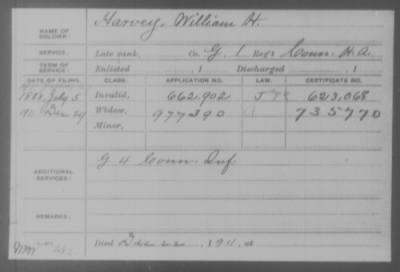 NAME OF SOLDIER: Harvey, William H.
SERVICE: Late rank, Co. G, 1 Reg't Conn. H.A.
TERM OF SERVICE: Enlisted , 1 Discharged , 1
DATE OF FILING. CLASS. APPLICATION NO. LAW. CERTIFICATE NO.
1888, July 5 Invalid, 662,902 623,068
1911 Dec 29 Widow, 977390 735770
Minor,
ADDITIONAL SERVICES: G 4 Conn. Inf
REMARKS:
Died Dec 22, 1911, at